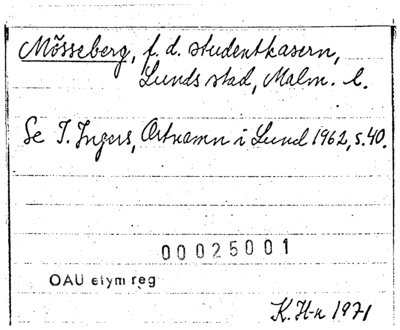 Mösseberg, f. d. studentkasern,
Lunds stad, Malm. l.
Se I. Ingers, Ortnamn i Lund 1962, s. 40.
00025001
OAU etym reg
K. H-n 1971